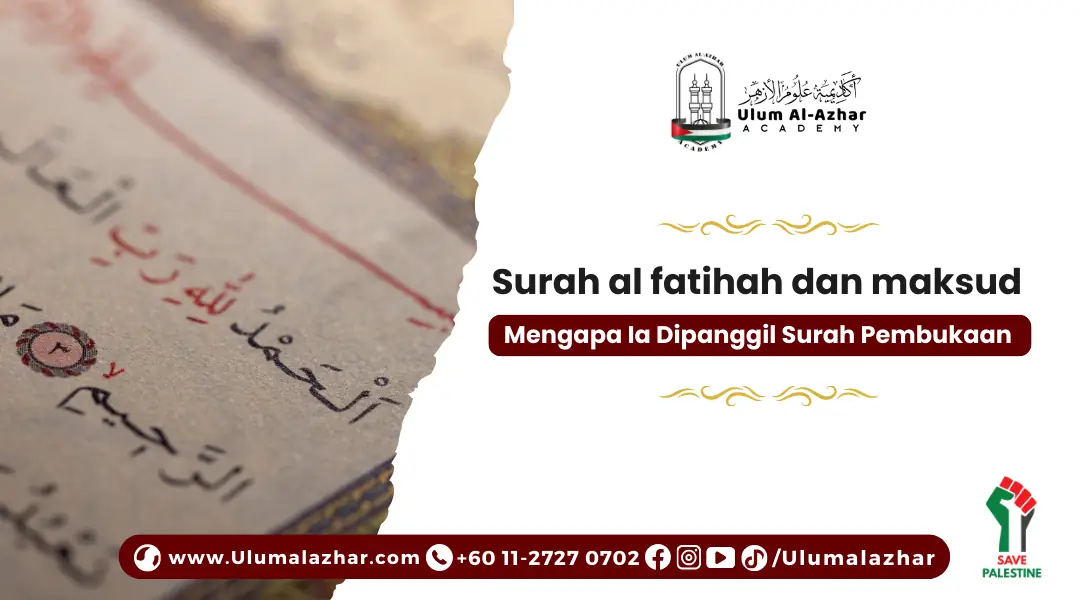 الْعَالَ
الْحَمْدُ لِلَّهِ رَبِّ
٣
الرَّحِيمِ
ULUM AL-AZHAR
ACADEMY
أكاديمية علوم الأزهر
Ulum Al-Azhar
ACADEMY
Surah al fatihah dan maksud
Mengapa Ia Dipanggil Surah Pembukaan
www.Ulumalazhar.com +60 11-2727 0702 /Ulumalazhar
SAVE
PALESTINE